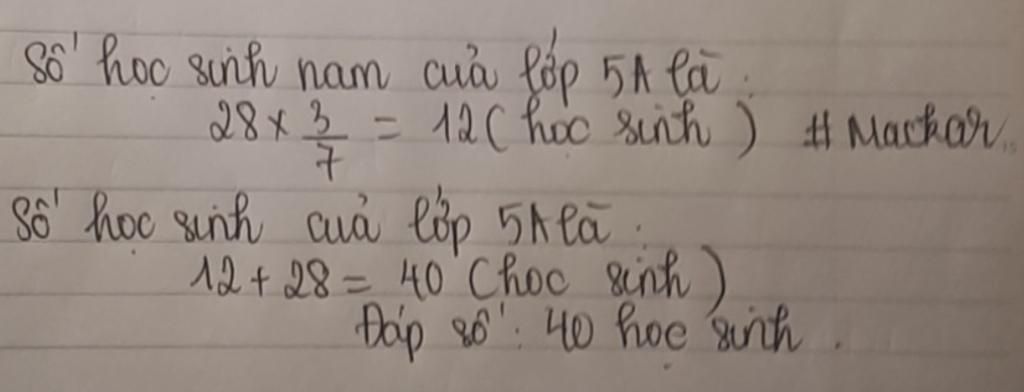 Số học sinh nam của lớp 5A là:
28 × 3/7 = 12 (học sinh) # Mackar
Số học sinh của lớp 5A là:
12 + 28 = 40 (học sinh)
Đáp số: 40 học sinh.